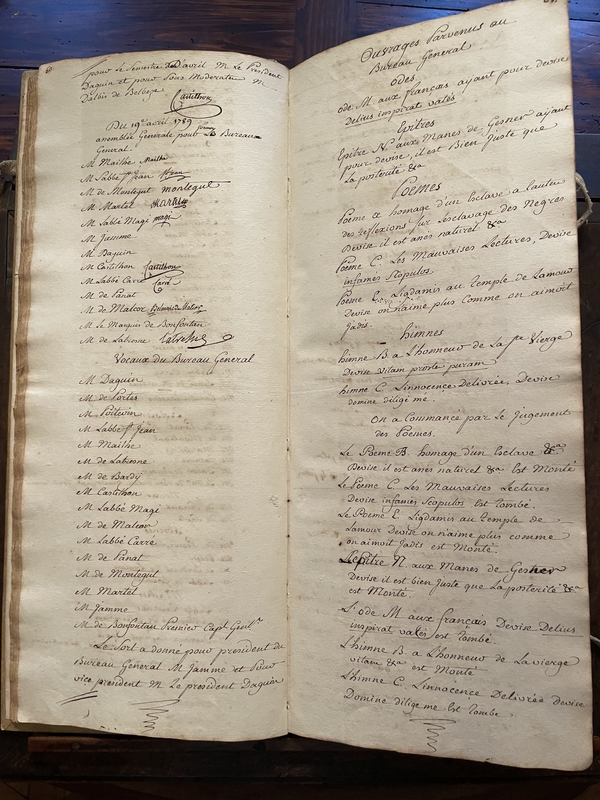 pour Le Semestre d'avril M. Le President
Daguin et pour Sous Moderateur M.
Dalbis de Belbeze
Castilhon
Du 19e avril 1789
assemblée Generale pour former Le Bureau
General.
M Mailhe Mailhe
M Labbé St Jean
M de Montegut montegut
M Martel Martel
M Labbé Magi magi
M Jamme
M Daguin
M Castilhon Castilhon
M Labbé Carré Carré
M de Panat
M de Malcor
M Le Marquis de Bonfontan
M de Labione
Vocaux du Bureau General
M Daguin
M de Portes
M Poitevin
M Labbé St Jean
M Mailhe
M de Labione
M de Bardy
M Castilhon
M Labbé Magi
M de Malcor
M Labbé Carré
M de Panat
M de Montegut
M Martel
M Jamme
M de Bonfontan Premier Capl Genlh
Le Sort a donné pour president du
Bureau General M Jamme et Pour
vice president M Le president Daguin
Ouvrages Parvenus au
Bureau General
odes
ode M. aux français ayant pour devise
Delius inspirat valés
Epitres
Epitre N. aux Manes de Gesner aijant
pour devise, il est Bien Juste que
La posterité &a
Poemes
Poeme B homage d'un Esclave a Lauteur
des reflexions sur Lesclavage des Negres
Devise il est anés naturel &a
Poeme C. Les Mauvaises Lectures, Devise
infames Scopulos
Poeme E. Ligdamis au Temple de Lamour
Devise on n'aime plus comme on aimoit
Jadis.
himnes
himne B a Lhonneur de La Ste Vierge
Devise vitam præsta puram
himne C. Linnocence Delivrée, Devise
domine dilige me.
on a Commancé par Le Jugement
des Poemes.
Le Poeme B. homage d'un Esclave &a
Devise il est anés naturel &a Est Monté
Le Poeme C. Les Mauvaises Lectures
Devise infames Scopulos Est tombé.
Le Poeme E. Ligdamis au Temple de
Lamour Devise on n'aime plus comme
on aimoit Jadis est Monté.
Lepitre N. aux Manes de Gesner
Devise il est bien Juste que La posterité &a
est Monté
L'ode M aux français Devise Delius
inspirat valés est tombé.
Lhimne B a Lhonneur de La vierge
vitam &a est Monté
Lhimne C. Linnocence Delivrée devise
Domine dilige me Est tombé.